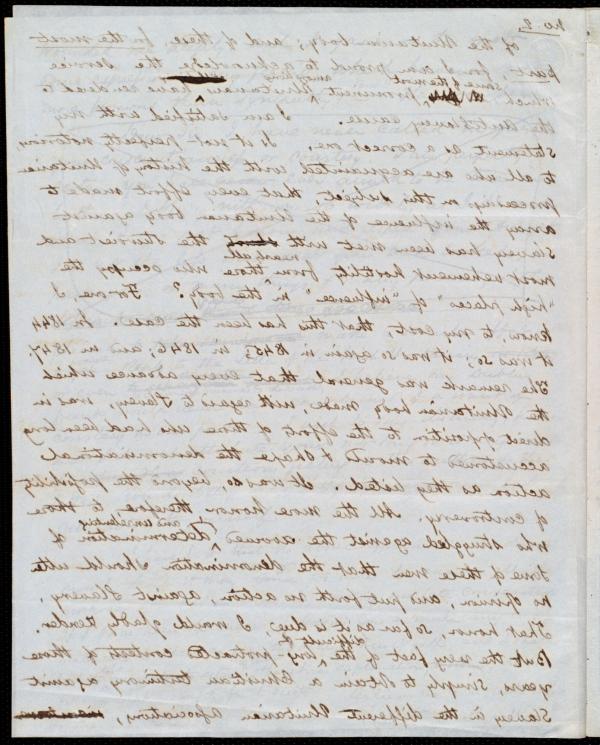 no 2.
of the Unitarian body; and of these, for the most
part, for I am proud to acknowledge the service
which some of the most prominent among the Unitarians have rendered to
the Antislavery cause. I am satisfied with my
statement as a correct one. Is it not perfectly notorious
to all who are acquainted with the history of Unitarian
proceedings on this subject, that every effort made to
array the influence of the Unitarian body against
slavery has been met with the sturdiest and
most vehement hostility from nearly all those who occupy the
"high places" of "influence" in the body? For one, I
know, to my cost, that this has been the case. In 1844
it was so; it was so again in 1845; in 1846; and in 1847.
The remark was general that every advance which
the Unitarian body made, with regard to Slavery, was in
direct opposition to the efforts of those who had been long
accustomed to mould & shape the denominational
action as they listed. It was so, beyond the possibility
of controversy. All the more honor, therefore, to those
who struggled against the avowed & and unrelenting determination of
some of these men that the denomination should utter
no opinion, and put forth no action, against Slavery.
That honor, so far as it is due, I would gladly render.
But the very fact of the difficult & long-protracted contest of those
years, simply to obtain a Christian testimony against
Slavery in the different Unitarian associations,